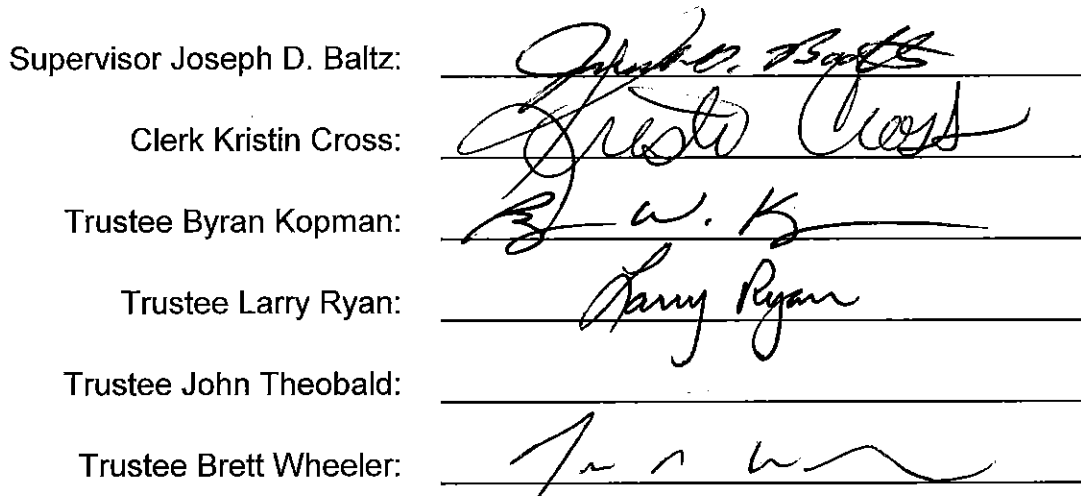 Supervisor Joseph D. Baltz: Joseph D. Baltz
Clerk Kristin Cross: Kristin Cross
Trustee Byran Kopman: W. K
Trustee Larry Ryan: Larry Ryan
Trustee John Theobald:
Trustee Brett Wheeler: